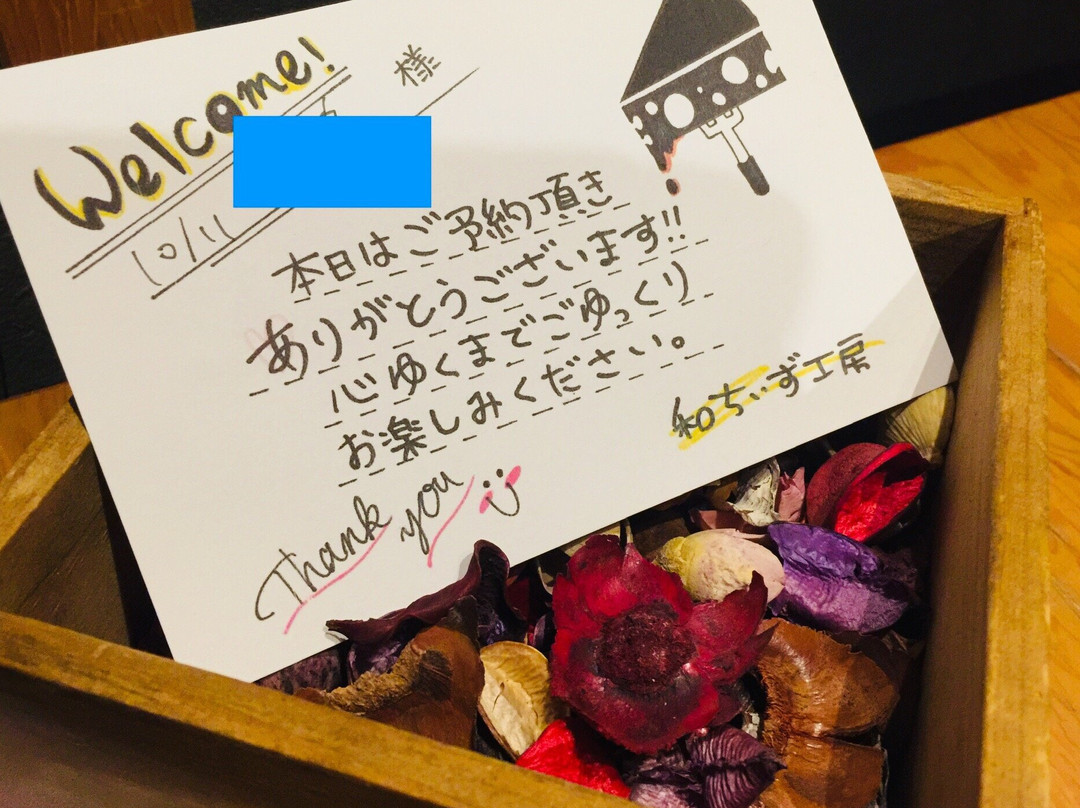 Welcome!
様
10/11
本日はご予約頂き
ありがとうございます!!
心ゆくまでごゆっくり
お楽しみください。
和ちぃず工房
Thank you